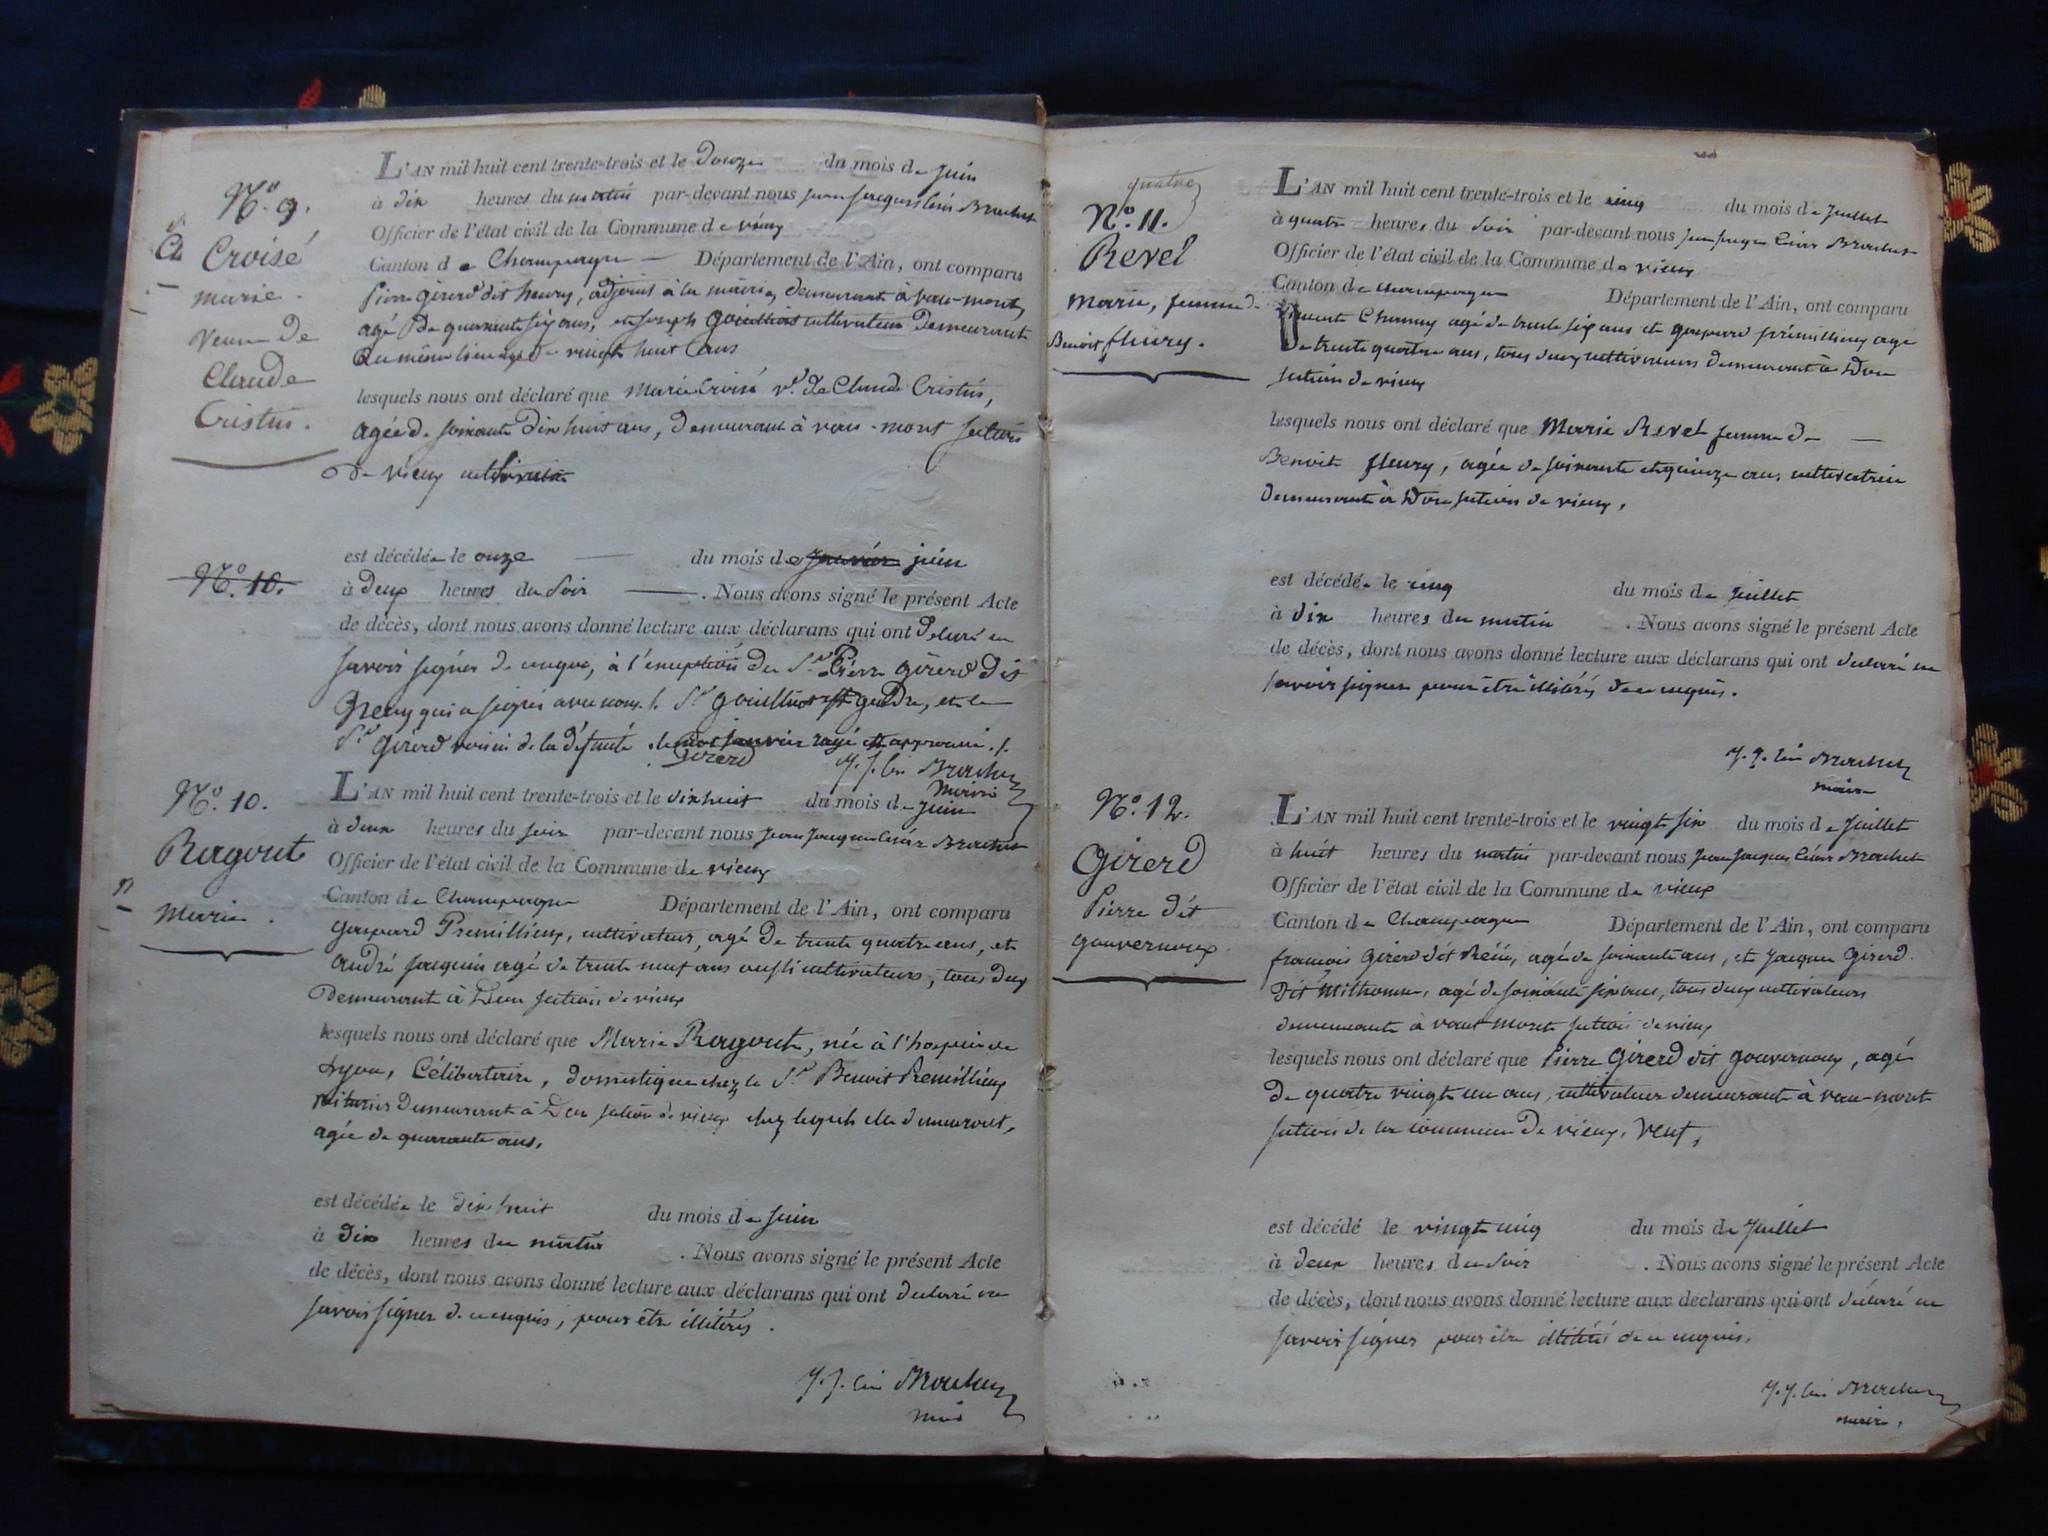 N.º 9.
Croisé
marie.
veuve de
Claude
Cristin.
L'AN mil huit cent trente-trois et le douze du mois de juin
à dix heures du matin par-devant nous jean jacques César Brochet
Officier de l'état civil de la Commune de vieux
Canton de Champagne Département de l'Ain, ont comparu
pierre girerd dit henry, adjoint à la mairie, demeurant à vau-mont,
agé de quarante six ans, et joseph cultivateur demeurant
au même lieu agé de vingt huit ans
lesquels nous ont déclaré que marie Croisé v.e de Claude Cristin,
agée de soixante dix huit ans, demeurant à vau-mont section
de vieux cultivatrice
N.º 10.
est décédée le onze du mois de janvier juin
à deux heures du soir . Nous avons signé le présent Acte
de décès, dont nous avons donné lecture aux déclarans qui ont déclaré ne
savoir signer de enquis, à l'exception du S.r Pierre girerd dit
henry qui a signé avec nous. /. S.r gendre, et le
S.r girerd voisin de la défunte. le mot janvier rayé et approuvé. /.
Girerd J. J. César Brochet
Maire
N.º 10.
Ragout
Marie.
L'AN mil huit cent trente-trois et le dixhuit du mois de juin
à deux heures du soir par-devant nous Jean Jacques César Brochet
Officier de l'état civil de la Commune de vieux
Canton de Champagne Département de l'Ain, ont comparu
gaspard Premillieux, cultivateur, agé de trente quatre ans, et
andré jacquin agé de trente neuf ans aussi cultivateurs, tous deux
demeurant à Don section de vieux
lesquels nous ont déclaré que Marie Ragout, née à l'hospice de
Lyon, Célibataire, domestique chez le S.r Benoit Premillieux
demeurant à Don section de vieux chez lequel elle demeurait,
agée de quarante ans,
est décédée le dix huit du mois de juin
à dix heures du matin . Nous avons signé le présent Acte
de décès, dont nous avons donné lecture aux déclarans qui ont déclaré ne
savoir signer de ce enquis, pour être illitérés.
J. J. César Brochet
maire
quatre
N.º 11.
Revel
Marie, femme de
Benoit fleury.
L'AN mil huit cent trente-trois et le cinq du mois de Juillet
à quatre heures du soir par-devant nous jean jacques César Brochet
Officier de l'état civil de la Commune de vieux
Canton de champagne Département de l'Ain, ont comparu
agé de trente six ans et gaspard prémillieux agé
de trente quatre ans, tous deux cultivateurs demeurant à Don
section de vieux
lesquels nous ont déclaré que Marie Revel femme de
Benoit fleury, agée de soixante et quinze ans, cultivatrice
demeurant à Don section de vieux,
est décédée le cinq du mois de juillet
à dix heures du matin . Nous avons signé le présent Acte
de décès, dont nous avons donné lecture aux déclarans qui ont déclaré ne
savoir signer pour être illitérés de ce enquis.
J. J. César Brochet
maire
N.º 12.
Girerd
Pierre dit
gouvernoux.
L'AN mil huit cent trente-trois et le vingt six du mois de Juillet
à huit heures du matin par-devant nous Jean Jacques César Brochet
Officier de l'état civil de la Commune de vieux
Canton de Champagne Département de l'Ain, ont comparu
françois Girerd dit Réné, agé de soixante ans, et Jacques Girerd
dit Milhomme, agé de soixante six ans, tous deux cultivateurs
demeurants à vaux mont section de vieux
lesquels nous ont déclaré que Pierre Girerd dit gouvernoux, agé
de quatre vingt un ans, cultivateur demeurant à vau-mont
section de la commune de vieux, veuf,
est décédé le vingt cinq du mois de Juillet
à deux heures du soir . Nous avons signé le présent Acte
de décès, dont nous avons donné lecture aux déclarans qui ont déclaré ne
savoir signer pour être illitérés de ce enquis.
J. J. César Brochet
maire.